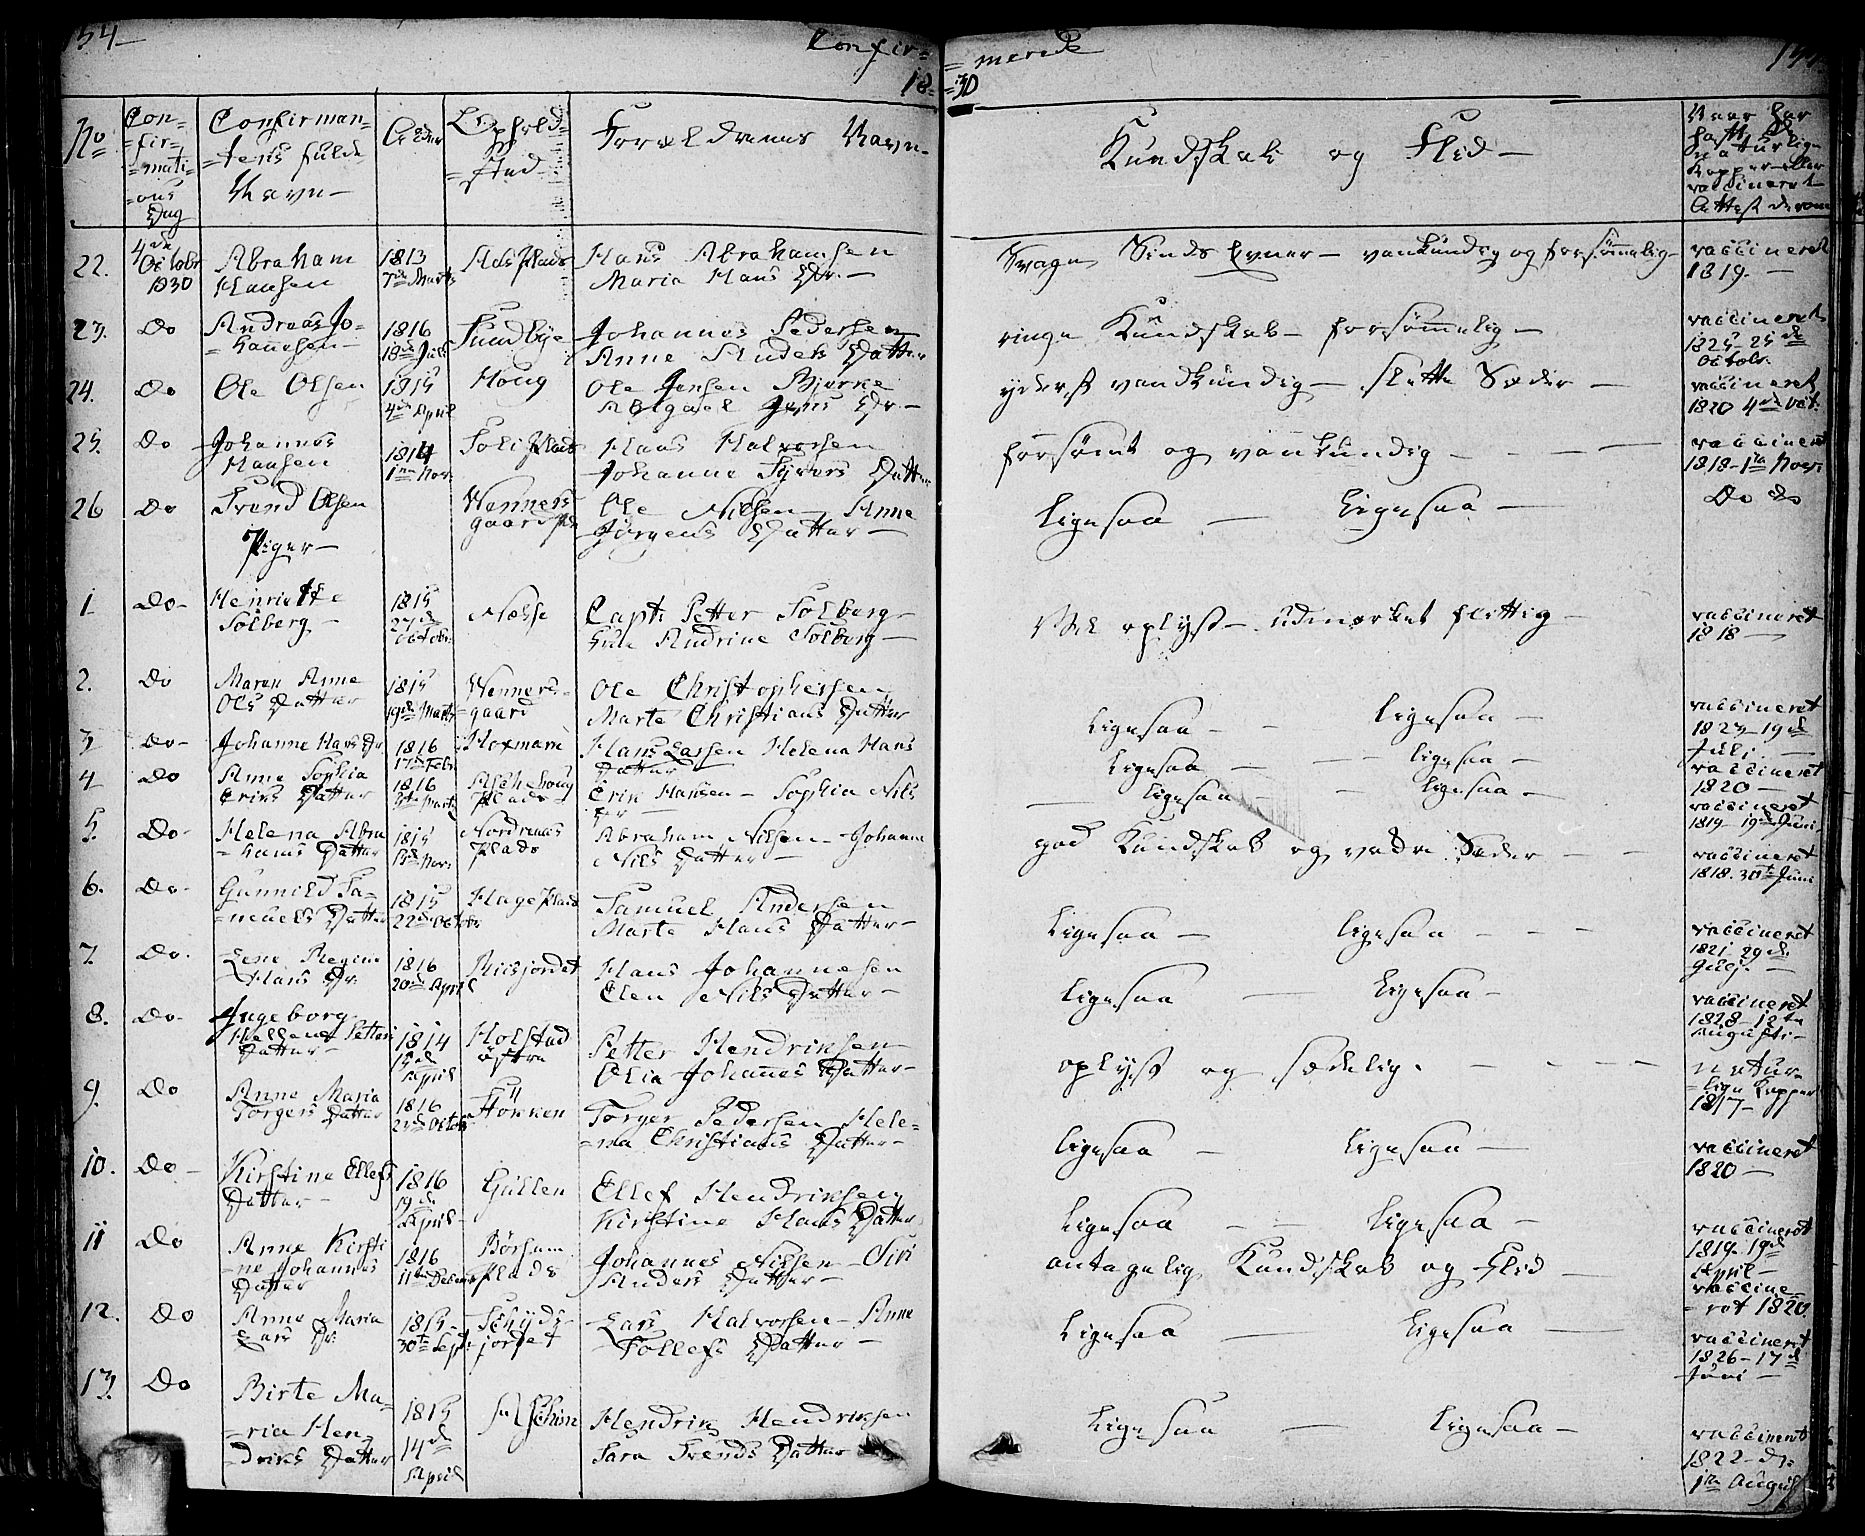 154
Confir= =merede
18= =30
No
Con=
=fir=
=mati=
=ons
Dag
Confirman=
=tens fulde
Navn
Alder
Ophold=
=sted
Forældrenes Navn
Kundskab og Flid
Naar har
haft de
naturlige
Kopper eller
vaccineret
Attest derom
22. 4de Octobr 1830 Abraham Hansen 1813 7de Marts Aas Plads Hans Abrahamsen Maria Hans Dr. Svage Sinds Evner vankundig og forsømmelig vaccineret 1819.
23. Do Andreas Jo=hannesen 1816 18de Juli Sundbye Johannes Pedersen Anne Anders Datter ringe Kundskab forsømmelig vaccineret 1825 25de Octobr.
24. Do Ole Olsen 1815 4de April Houg Ole Jensen Bjerke Abigael Jens Dr. yderst vandkundig slette Sæder vaccineret 1820 4de Oct.
25. Do Johannes Hansen 1814 1ste Nov. Soli Plads Hans Halvorsen Johanne Syvers Datter forsømt og vankundig vaccineret 1818 1ste Nov.
26 Do Svend Olsen Wenners gaard Pls Ole Nilsen Anne Jørgens Datter ligesaa ligesaa Do do
Piger
1 Do Henriette Solberg 1815 27de Octobr. Nesse Capt. Petter Solberg Andrine Solberg Vel oplyst udmærket flittig vaccineret 1818
2. Do Maren Anne Ols Datter 1815 19de Marts Wenners=gaard Ole Christophersen Marte Christians Datter ligesaa ligesaa vaccineret 1823 19de Juli
3 Do Johanne Hans Dr 1816 17de Febr. Moxmarn Hans Larsen Helena Hans Datter ligesaa ligesaa vaccineret 1820
4 Do Anne Sophia Eriks Datter 1816 Marts Aschehoug Plads Erik Hansen Sophia Nils Dr ligesaa ligesaa vaccineret 1819 19de Juni
5. Do Helena Abra=hams Datter 1815 13de Nov. Nordrenaas Plads Abraham Nilsen Johanne Nils Datter god Kundskab og vakre Sæder vaccineret 1818. 30te Juni
6. Do Gunnild Sa=muels Datter 1815 22de Octobr Hage Plads Samuel Andersen Marte Hans Datter ligesaa ligesaa vaccineret 1821 29de
7. Do. Lene Regine Hans Dr. 1816 20de April Riisjordet Hans Johannesen Elen Nils Datter ligesaa ligesaa vaccineret 1828 12te Augusti
8. Do Ingeborg Petters Datter 1814 15de April Holstad østre Petter Hendriksen Olia Johannes Datter oplyst og sædelig. natur=lige Kopper 1817
9. Do Anne Maria Torgers Datter 1816 Octobr Støkken Torger Pedersen Hele=na Christians Datter ligesaa ligesaa vaccineret 1820
10. Do Kirstine Ellefs Datter 1816 19de April Gullen Ellef Hendriksen Kirstine Hans Datter ligesaa ligesaa vaccineret 1819. 19de April
11 Do Anne Kirsti=ne Johannes Datter 1816 11te Decembr Børsum Plads Johannes Nilsen Siri Anders Datter antagelig Kundskab og Flid vaccine=ret 1820
12. Do Anne Maria Lars Dr. 1815 30te Sept. jordet Lars Halvorsen Anne Tollefs Datter ligesaa ligesaa vaccineret 1826 17de Juni
13. Do Birte Ma=ria Hen=driks Datter 1815 14de April Hendrik Hendriksen Sara Svends Datter ligesaa ligesaa vaccineret 1822 d. 1ste August